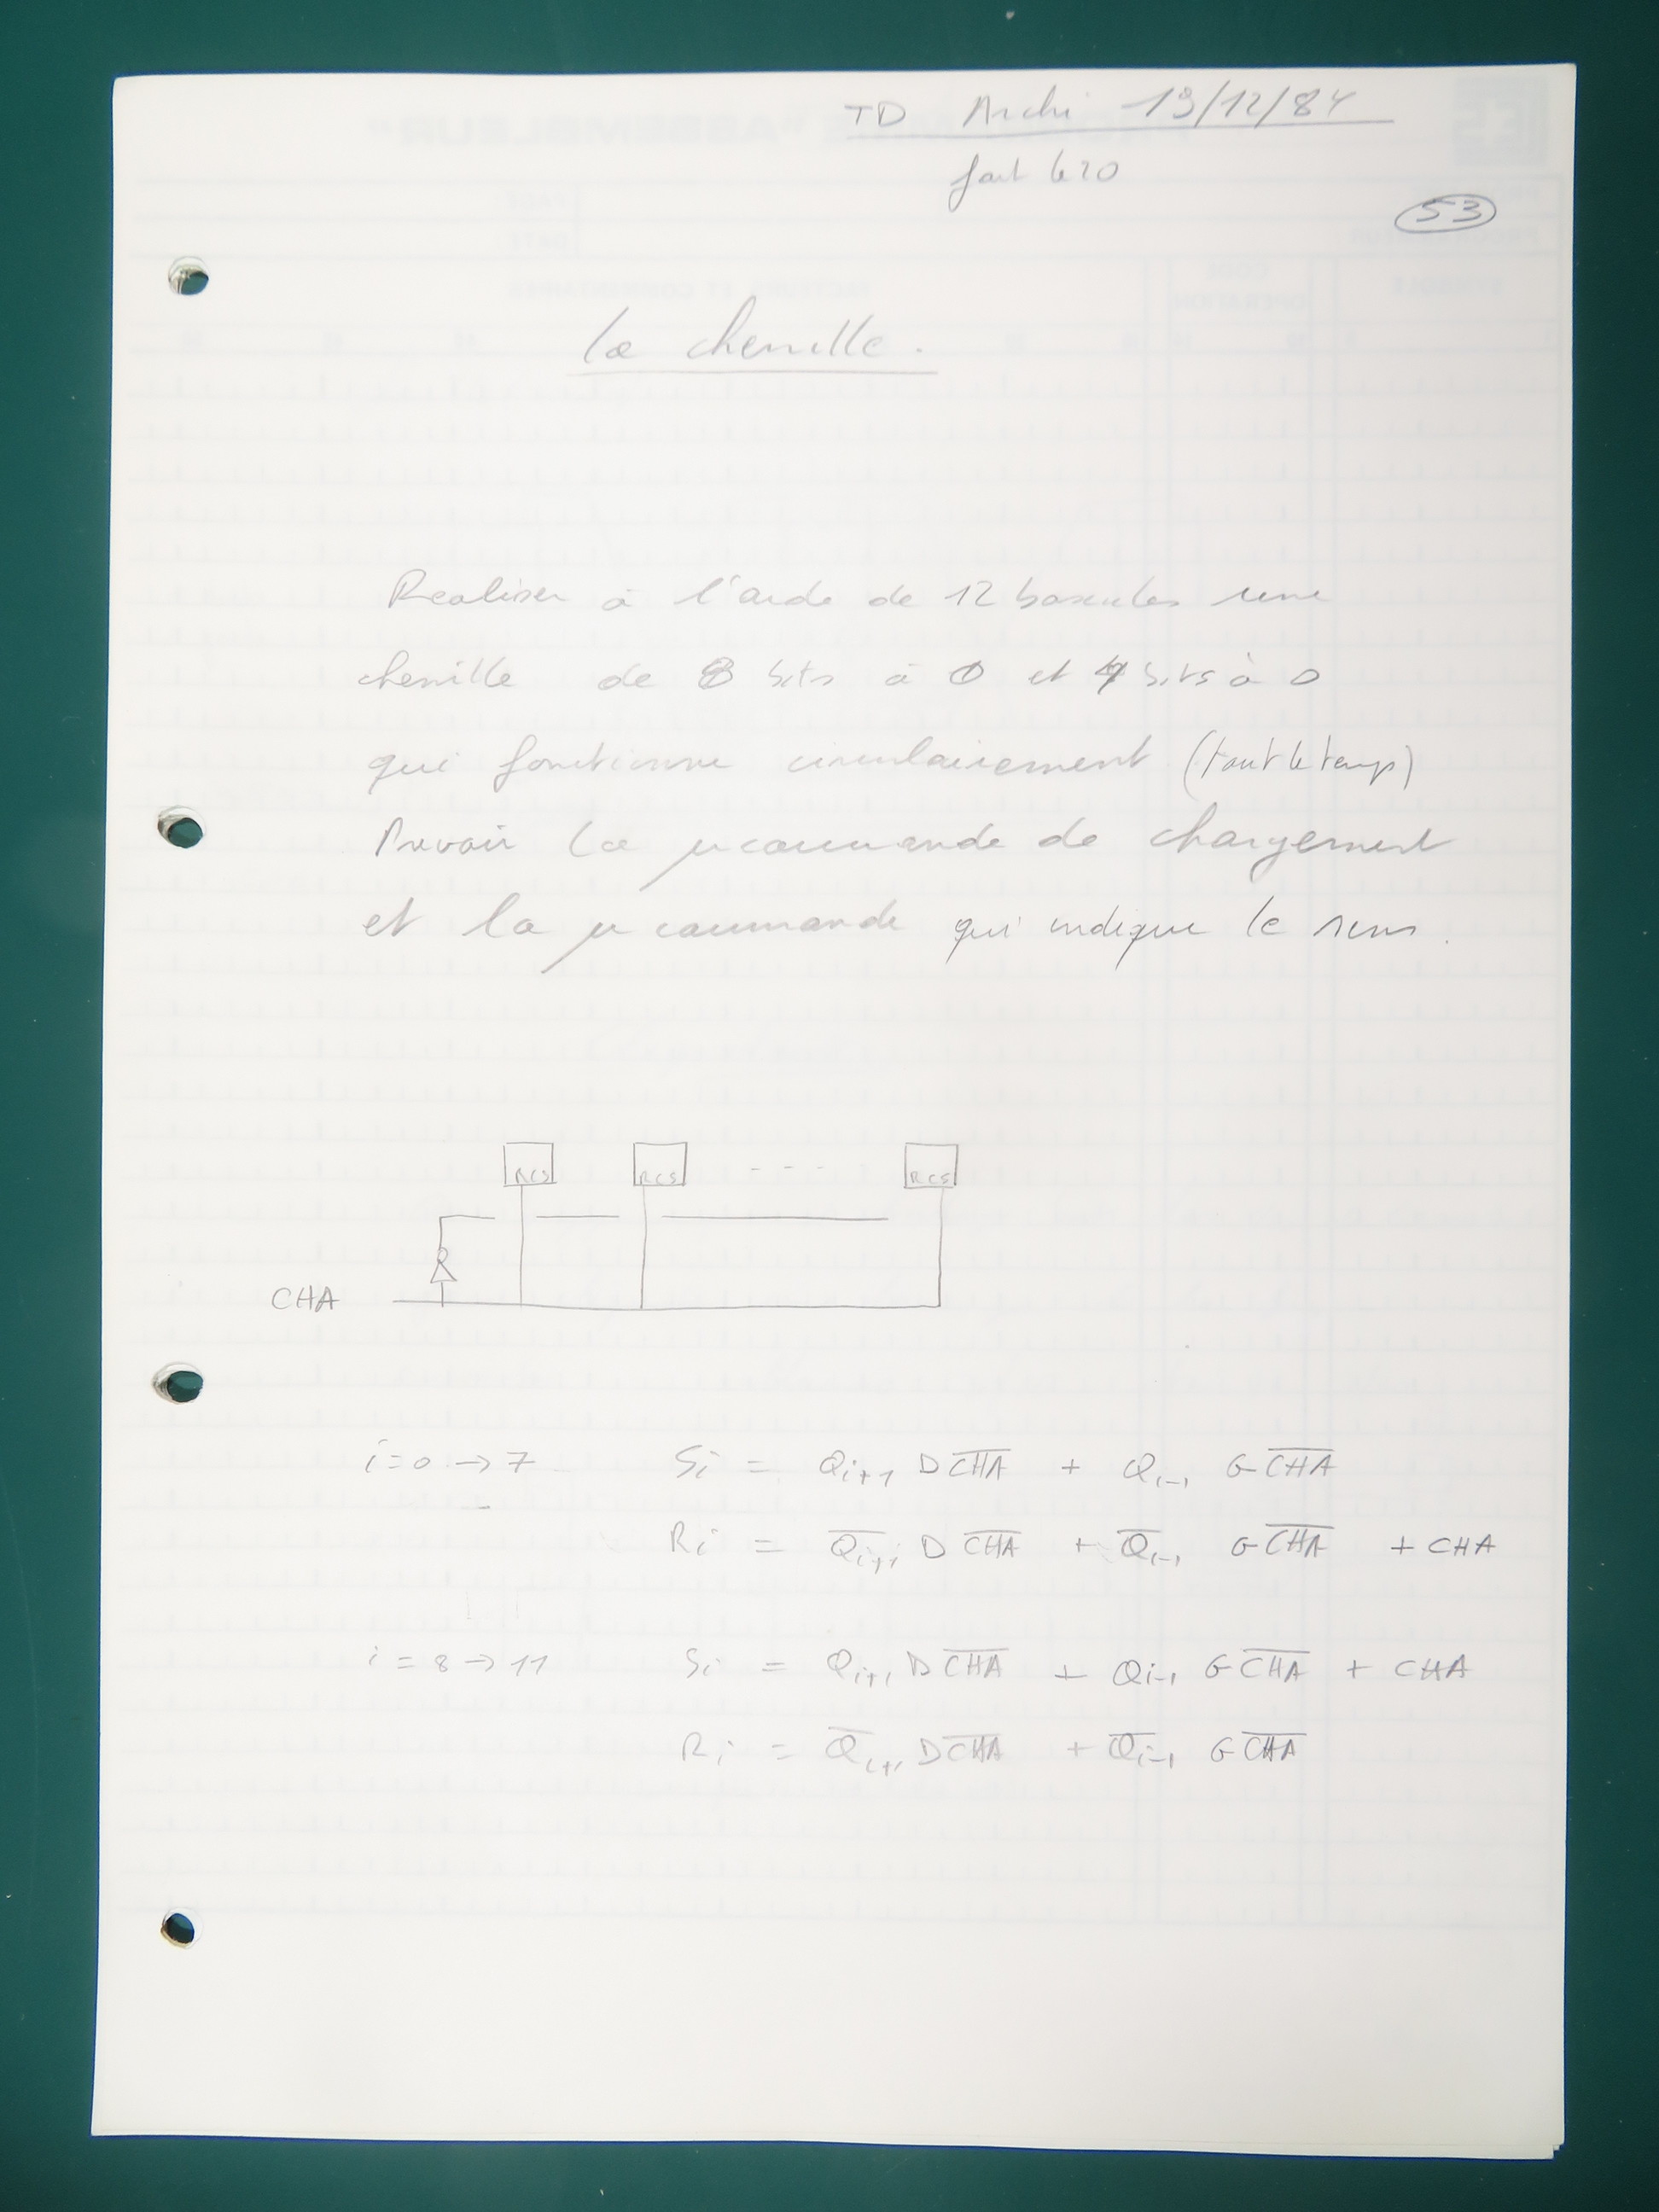 TD Archi 13/12/84
fait le 20
53
la chenille.
Realiser à l'aide de 12 bascules une
chenille de 8 bits à 0 et 4 bits à 0
qui fonctionne circulairement (tout le temps)
Prevoir la μcommande de chargement
et la μcommande qui indique le sens.
RCS RCS - - - RCS
CHA
i=0 → 7 Si = Qi+1 D C̅H̅A̅ + Qi-1 G C̅H̅A̅
Ri = Q̅i+1 D C̅H̅A̅ + Q̅i-1 G C̅H̅A̅ + CHA
i = 8 → 11 Si = Qi+1 D C̅H̅A̅ + Qi-1 G C̅H̅A̅ + CHA
Ri = Q̅i+1 D C̅H̅A̅ + Q̅i-1 G C̅H̅A̅